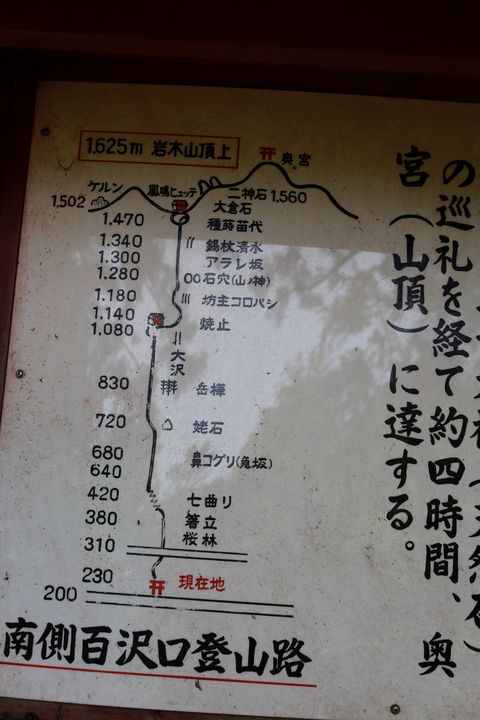 1.625m 岩木山頂上
奥宮
ケルン
鳳鳴ヒュッテ
二神石 1.560
1.502
大倉石
1.470
種蒔苗代
1.340
錫杖清水
1.300
アラレ坂
1.280
石穴(山ノ神)
1.180
坊主コロバシ
1.140
焼止
1.080
大沢
830
岳樺
720
姥石
680
鼻コグリ(急坂)
640
420
七曲リ
380
箸立
桜林
310
230
現在地
200
南側百沢口登山路
の巡礼を経て約四時間、奥
宮(山頂)に達する。